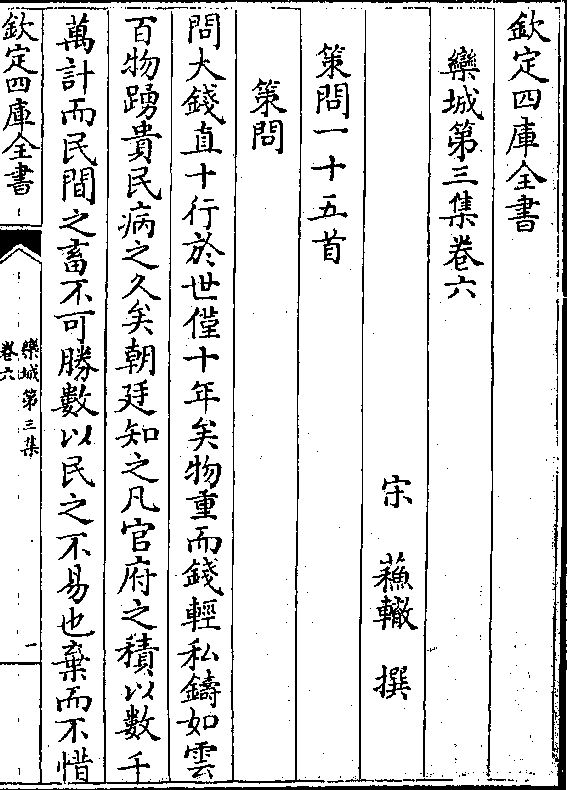 欽定四庫全書
欒城第三集卷六
宋　蘇轍　撰
策問一十五首
策問
問大錢直十行於世僅十年矣物重而錢輕私鑄如雲
百物踴貴民病之久矣朝廷知之凡官府之積以數千
萬計而民間之畜不可勝數以民之不易也棄而不惜
欽定四庫全書
欒城第三集
卷六
一